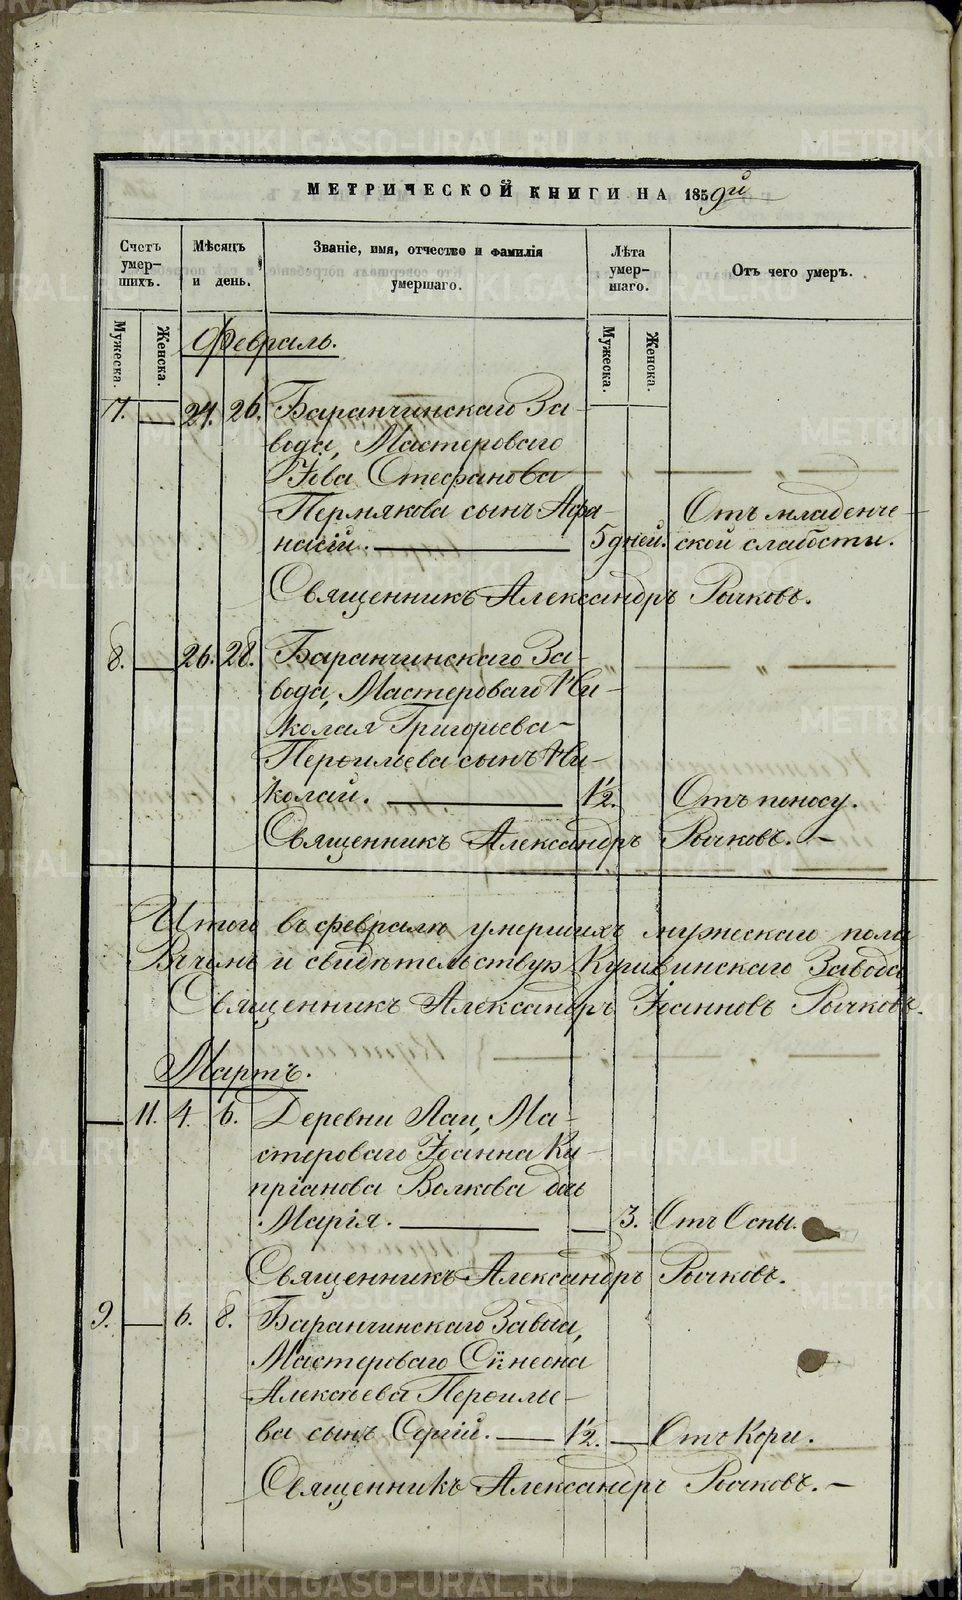 МЕТРИЧЕСКОЙ КНИГИ НА 1859й
Счетъ умер-шихъ.
Мѣсяцъ и день.
Званіе, имя, отчество и фамилія умершаго.
Лѣта умер-шаго.
Отъ чего умеръ.
Мужеска.
Женска.
Мужеска.
Женска.
Февраль.
7. — 24. 26. Баранчинскаго За-
вода, Мастероваго
Іова Стефанова
Пермякова сынъ Афа-
насій. — 5 дней. Отъ младенче-
ской слабости.
Священникъ Александръ Рычковъ.
8. — 26. 28. Баранчинскаго За-
вода, Мастероваго Ни-
колая Григорьева
Перѳильева сынъ Ни-
колай. — 1/2. Отъ поносу.
Священникъ Александръ Рычковъ. —
Итого въ февралѣ умершихъ мужескаго пола
и свидѣтельствую Кушвинскаго Завода
Священникъ Александръ Іоанновъ Рычковъ.
Мартъ.
— 11. 4. 6. Деревни Лаи, Ма-
стероваго Іоанна Ки-
пріанова Волкова дочь
Марія. — — 3. Отъ Оспы.
Священникъ Александръ Рычковъ.
9. — 6. 8. Баранчинскаго Завода,
Мастероваго Сѵмеона
Алексѣева Перѳилье-
ва сынъ Сергій. — 1/2. — Отъ Кори.
Священникъ Александръ Рычковъ. —
METRIKI.GASO-URAL.RU